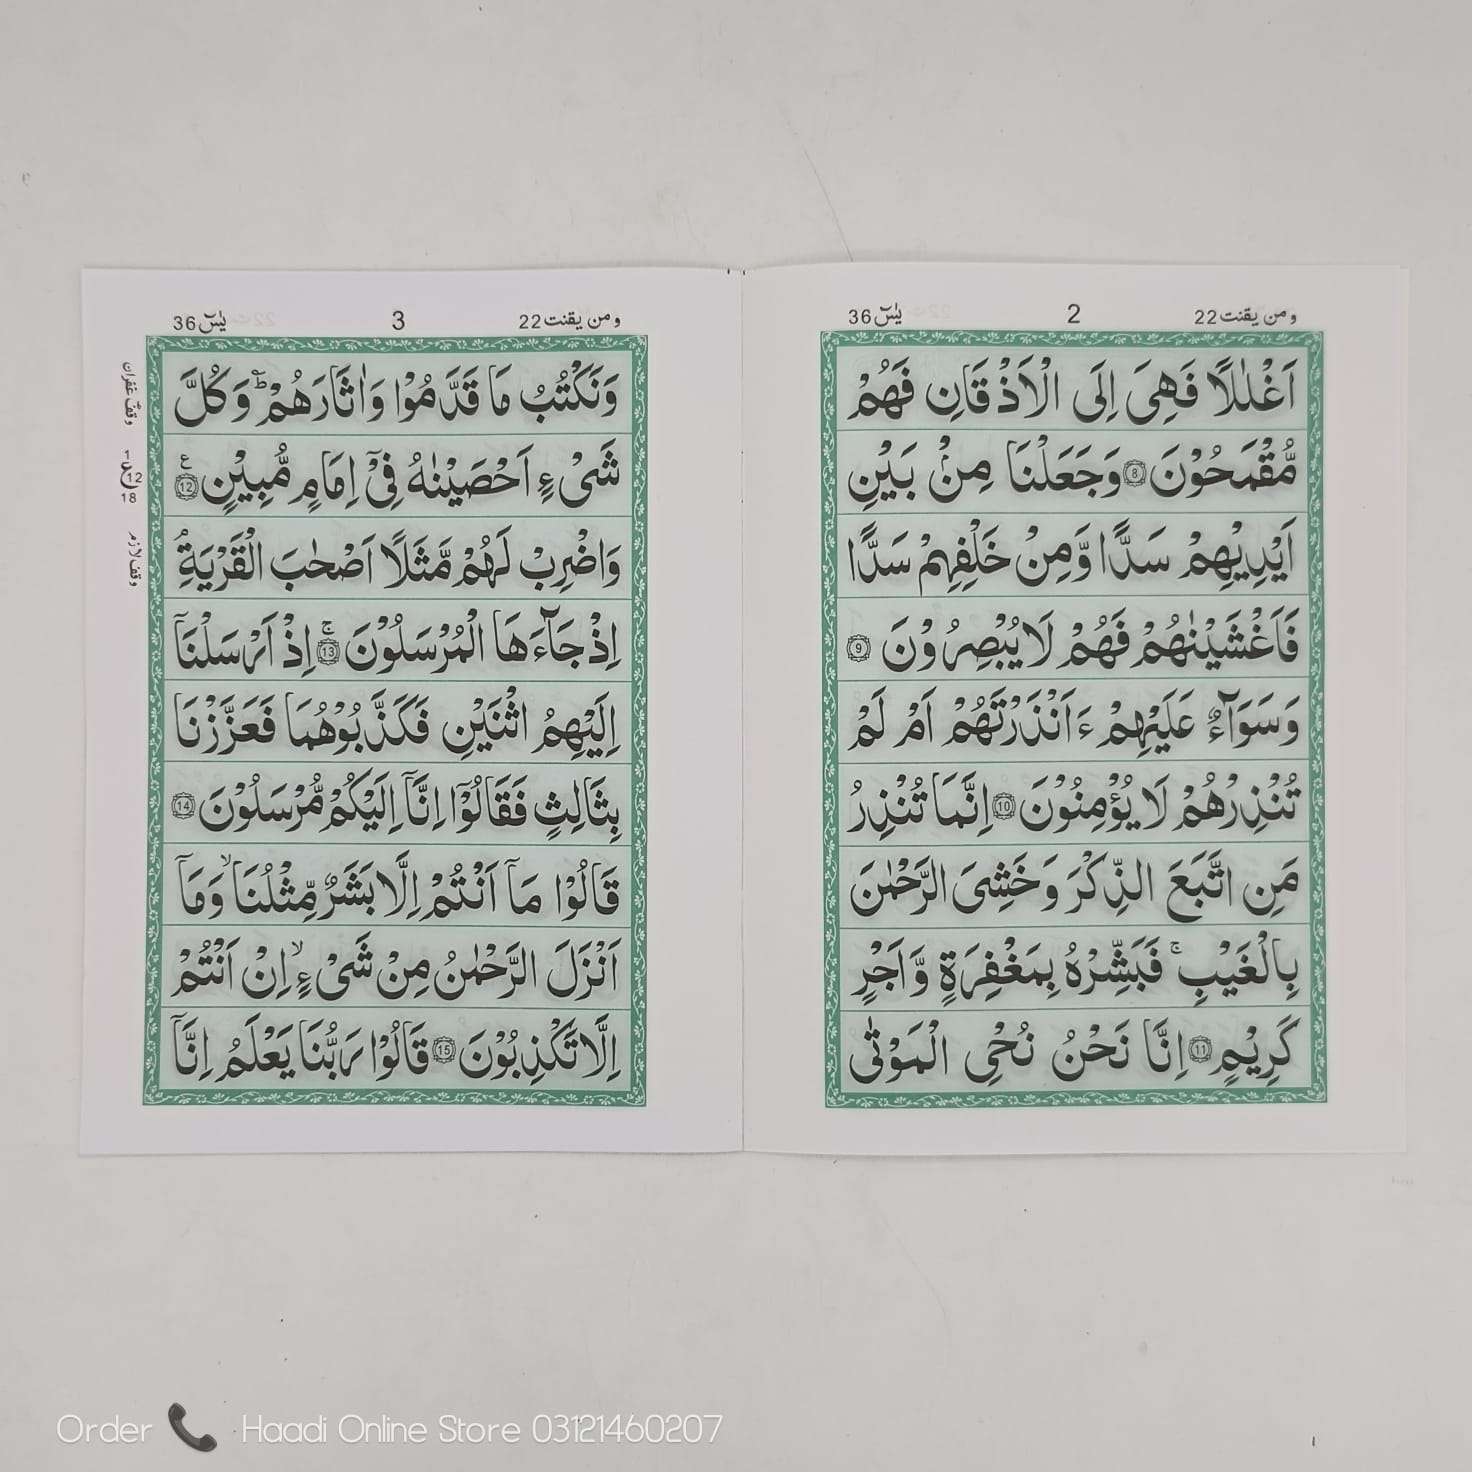 ومن يقنت 22 2 يٰسٓ 36
اَغْلٰلًا فَهِىَ اِلَى الْاَذْقَانِ فَهُمْ
مُّقْمَحُوْنَ ۝8 وَجَعَلْنَا مِنْۢ بَيْنِ
اَيْدِيْهِمْ سَدًّا وَّمِنْ خَلْفِهِمْ سَدًّا
فَاَغْشَيْنٰهُمْ فَهُمْ لَا يُبْصِرُوْنَ ۝9
وَسَوَآءٌ عَلَيْهِمْ ءَاَنْذَرْتَهُمْ اَمْ لَمْ
تُنْذِرْهُمْ لَا يُؤْمِنُوْنَ ۝10 اِنَّمَا تُنْذِرُ
مَنِ اتَّبَعَ الذِّكْرَ وَخَشِىَ الرَّحْمٰنَ
بِالْغَيْبِ ۚ فَبَشِّرْهُ بِمَغْفِرَةٍ وَّاَجْرٍ
كَرِيْمٍ ۝11 اِنَّا نَحْنُ نُحْىِ الْمَوْتٰى
ومن يقنت 22 3 يٰسٓ 36
وَنَكْتُبُ مَا قَدَّمُوْا وَاٰثَارَهُمْ ؕ وَكُلَّ
شَىْءٍ اَحْصَيْنٰهُ فِىْۤ اِمَامٍ مُّبِيْنٍ ۝12 ع
وَاضْرِبْ لَهُمْ مَّثَلًا اَصْحٰبَ الْقَرْيَةِ ۘ
اِذْ جَآءَهَا الْمُرْسَلُوْنَ ۝13 ۚ اِذْ اَرْسَلْنَاۤ
اِلَيْهِمُ اثْنَيْنِ فَكَذَّبُوْهُمَا فَعَزَّزْنَا
بِثَالِثٍ فَقَالُوْۤا اِنَّاۤ اِلَيْكُمْ مُّرْسَلُوْنَ ۝14
قَالُوْا مَاۤ اَنْتُمْ اِلَّا بَشَرٌ مِّثْلُنَا ۙ وَمَاۤ
اَنْزَلَ الرَّحْمٰنُ مِنْ شَىْءٍ ۙ اِنْ اَنْتُمْ
اِلَّا تَكْذِبُوْنَ ۝15 قَالُوْا رَبُّنَا يَعْلَمُ اِنَّاۤ
وقف غفران
1
ع 12
18
وقف لازم
Order Haadi Online Store 03121460207